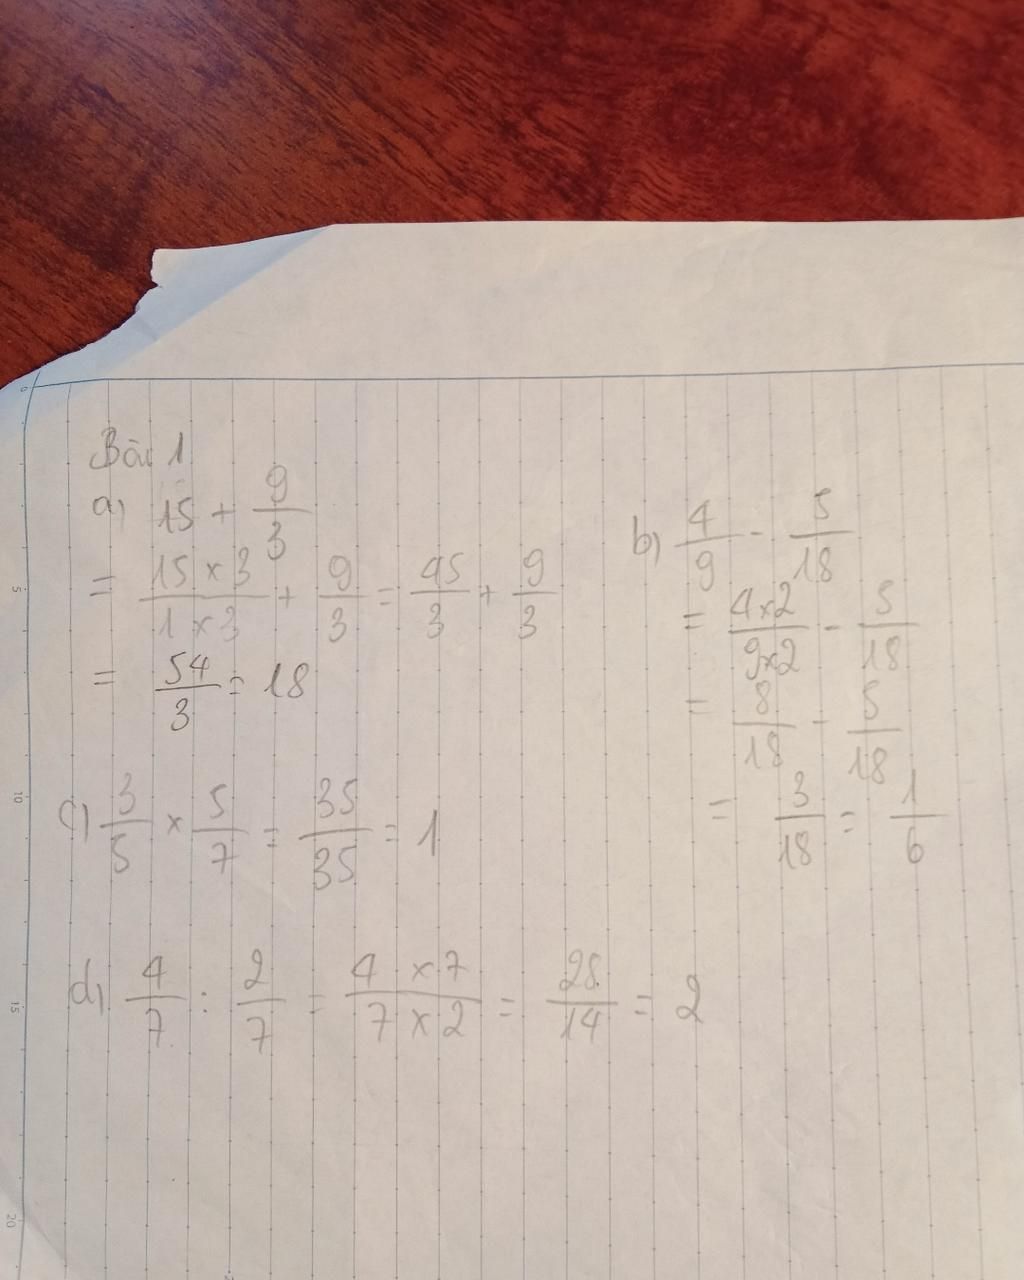 Bài 1
a) 15 + 9/3
= 15 x 3/1 x 3 + 9/3 = 45/3 + 9/3
= 54/3 = 18
b) 4/9 - 5/18
= 4x2/9x2 - 5/18
= 8/18 - 5/18
= 3/18 = 1/6
c) 3/5 x 5/7 = 35/35 = 1
d) 4/7 : 2/7 = 4 x 7/7 x 2 = 28/14 = 2
0
5
10
15
20